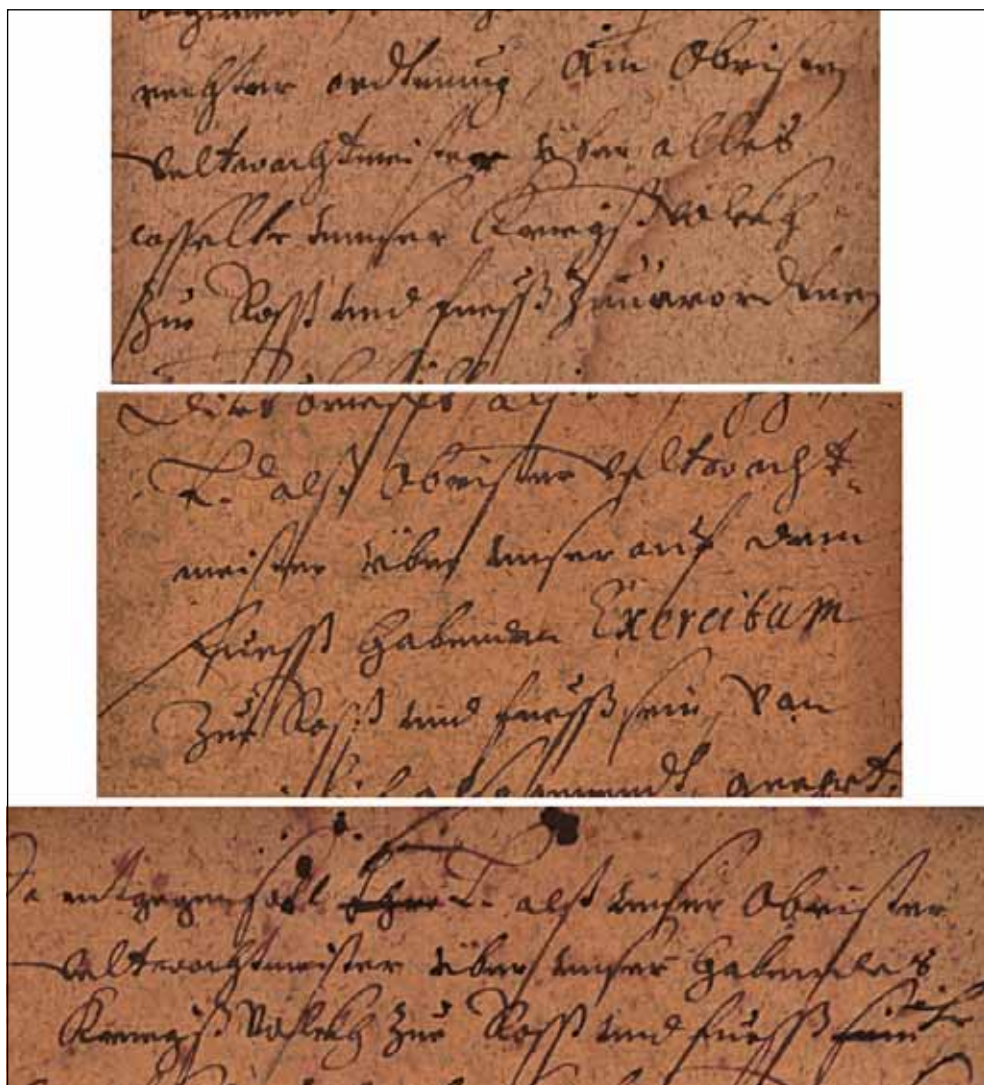 rechter ordtnung, Ain Obristen
veltwachtmeister über alles
unnser Kriegsvolckh
zu Ross und fuess zuuerordtnen
T. alss Obrister veltwacht-
meister über unser auf dem
fuess habenden Exercitum
zu Ross und fuess sein, von
entgegen soll T. alss unser Obrister
veltwachtmeister über unser habendes
Kriegsvolckh zu Ross und fuess